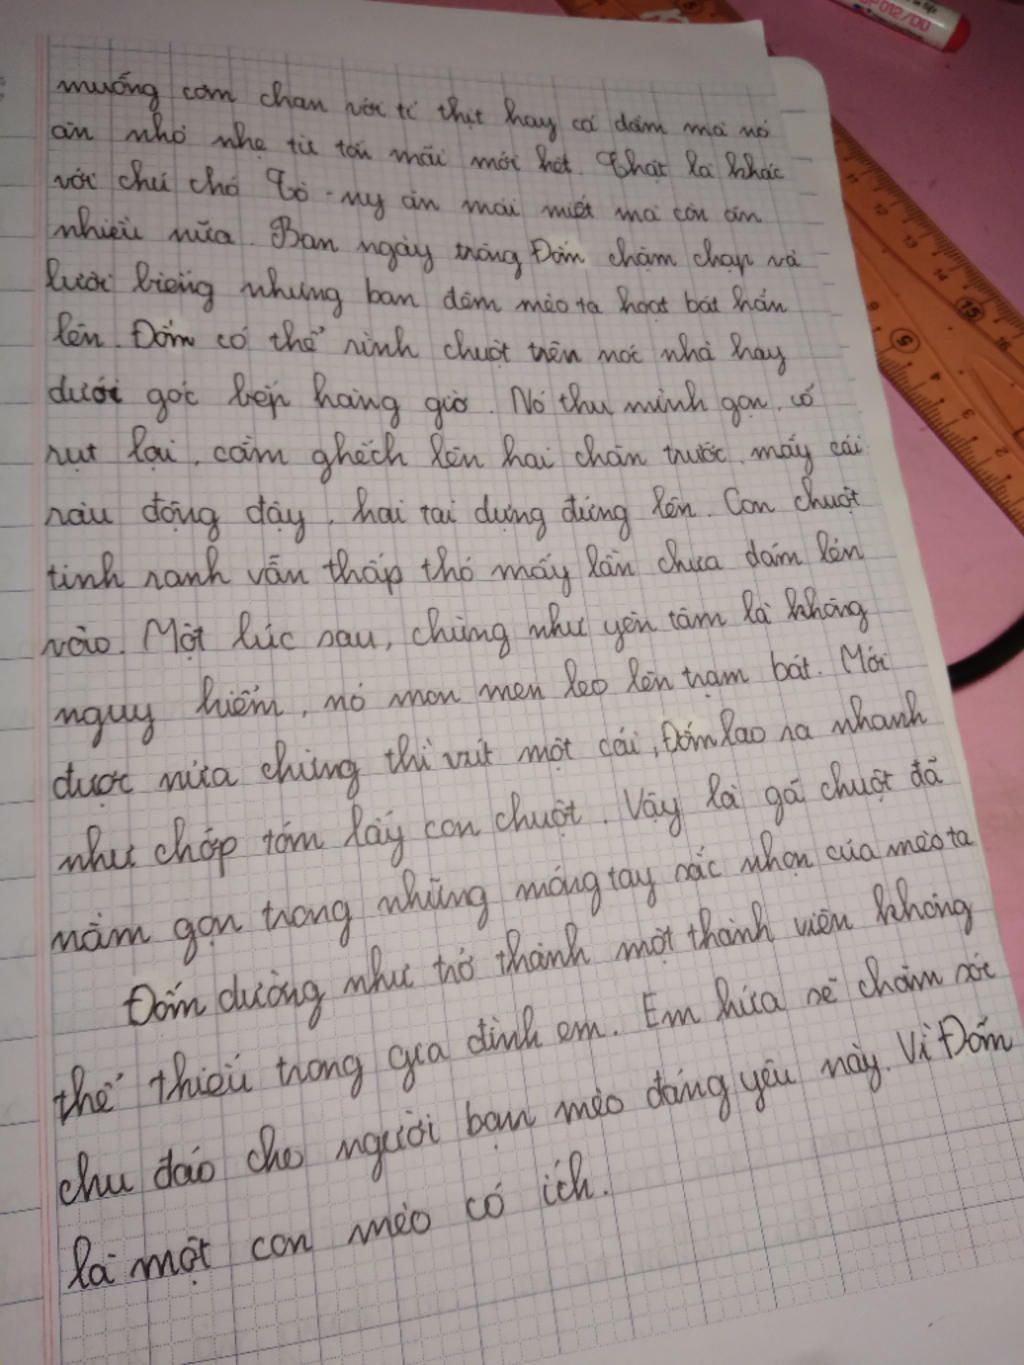 muống cơm chan với tí thịt hay cá dầm mà nó
ăn nhỏ nhẹ từ tốn mãi mới hết. Thật là khác
với chú chó Tô-ny ăn mải miết mà còn ăn
nhiều nữa. Ban ngày trông Đốm chậm chạp và
lười biếng nhưng ban đêm mèo ta hoạt bát hẳn
lên. Đốm có thể rình chuột trên nóc nhà hay
dưới góc bếp hàng giờ. Nó thu mình gọn, cổ
rụt lại, cằm ghếch lên hai chân trước, mấy cái
râu động đậy, hai tai dựng đứng lên. Con chuột
tinh ranh vẫn thấp thó mấy lần chưa dám lên
vào. Một lúc sau, chừng như yên tâm là không
nguy hiểm, nó mon men leo lên trạm bát. Mới
được nửa chừng thì vút một cái, Đốm lao ra nhanh
như chớp tóm lấy con chuột. Vậy là gã chuột đã
nằm gọn trong những móng tay sắc nhọn của mèo ta
Đốm dường như trở thành một thành viên không
thể thiếu trong gia đình em. Em hứa sẽ chăm sóc
chu đáo cho người bạn mèo đáng yêu này. Vì Đốm
là một con mèo có ích.
012/DO
12
13
14
15
16